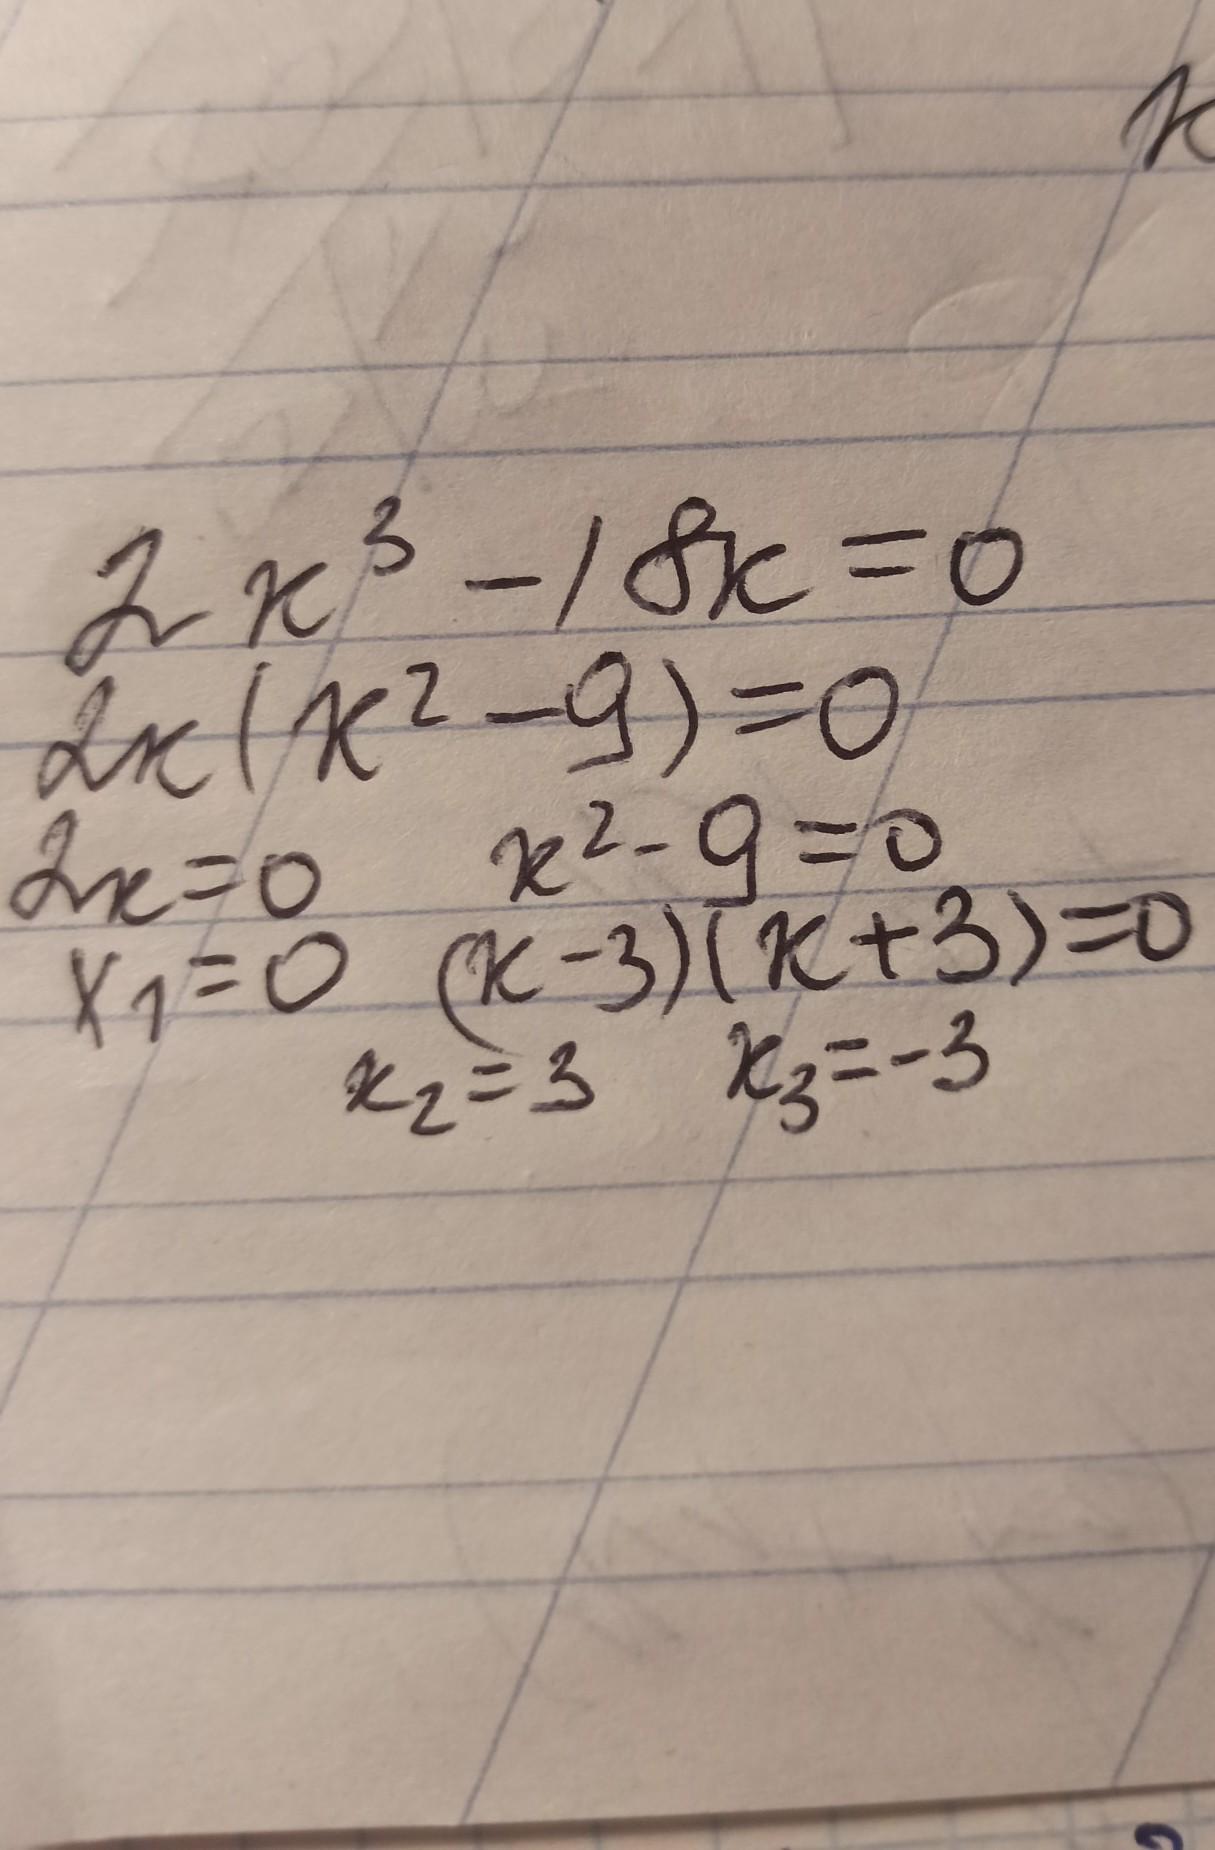 2x³ - 18x = 0
2x(x² - 9) = 0
2x = 0 x² - 9 = 0
x₁ = 0 (x - 3)(x + 3) = 0
x₂ = 3 x₃ = -3